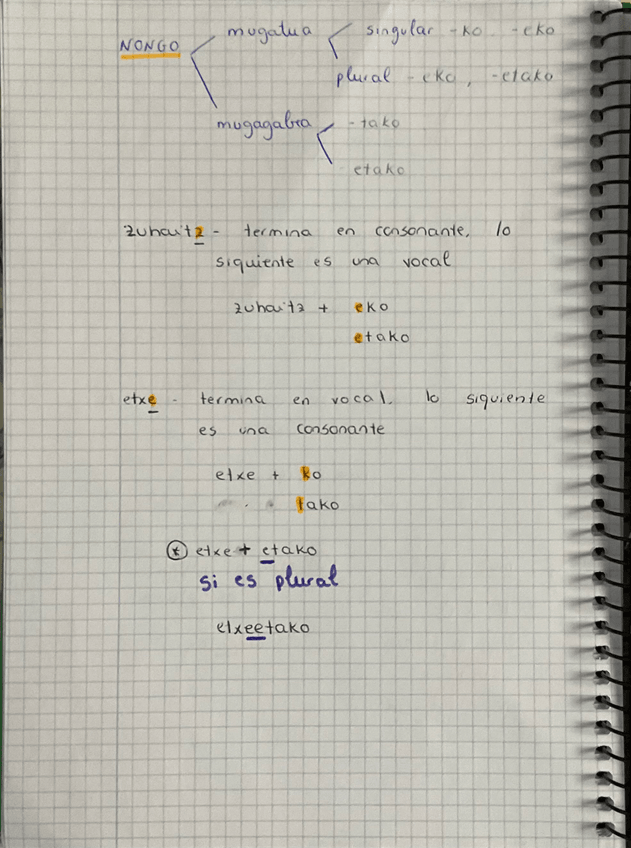 NONGO mugatua singular -ko -eko
plural -eko, -etako
mugagabea -tako
etako
zuhaitz - termina en consonante, lo
siquiente es una vocal
zuhaitz + eko
etako
etxe - termina en vocal, lo siquiente
es una consonante
etxe + ko
tako
* etxe + etako
si es plural
etxeetako